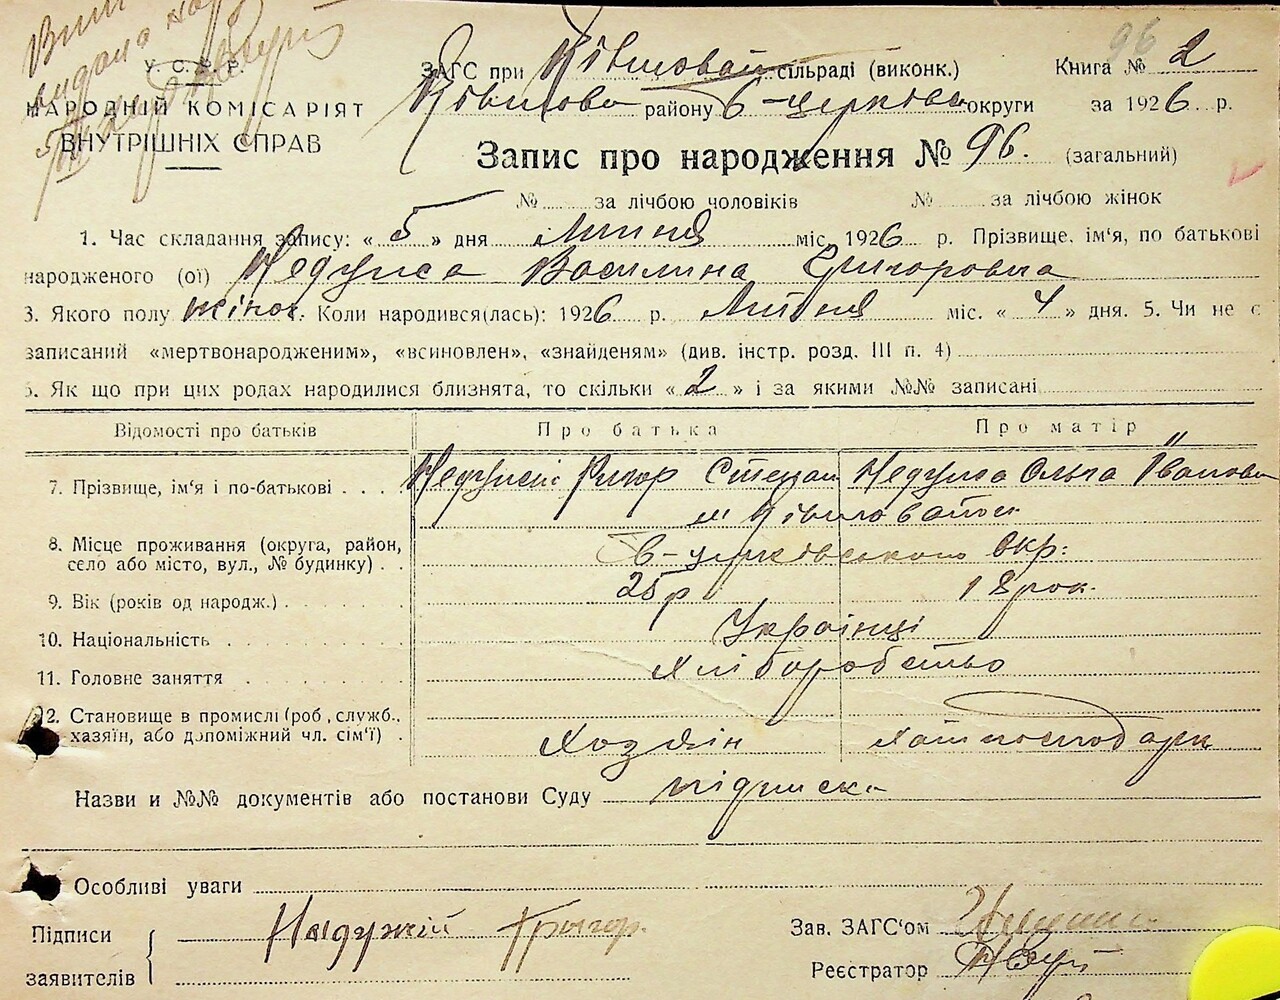 У. С. Р. Р.
НАРОДНІЙ КОМІСАРІЯТ
ВНУТРІШНІХ СПРАВ
ЗАГС при сільраді (виконк.)
району Б-церково округи
96
Книга № 2
за 1926 р.
Запис про народження № 96. (загальний)
№ за лічбою чоловіків № за лічбою жінок
1. Час складання запису: « 5 » дня Липня міс. 1926 р. Прізвище, ім'я, по батькові
народженого (ої) Недужа Василина Григоровна
3. Якого полу жіноч. Коли народився(лась): 1926 р. Липня міс. « 4 » дня. 5. Чи не є
записаний «мертвонародженим», «всиновлен», «знайденям» (див. інстр. розд. III п. 4)
6. Як що при цих родах народилися близнята, то скільки « 2 » і за якими №№ записані
Відомості про батьків Про батька Про матір
7. Прізвище, ім'я і по-батькові Недужий Григор Степан Недужа Ольга Іванова
8. Місце проживання (округа, район,
село або місто, вул., № будинку) Б-церківського окр:
9. Вік (років од народж.) 25 р 18 рок.
10. Національність Українці
11. Головне заняття Хліборобство
12. Становище в промислі (роб., служб.,
хазяїн, або допоміжний чл. сім'ї) Хозяїн Хатн господарк
Назви и №№ документів або постанови Суду підписка
Особливі уваги
Підписи
заявителів
Надужий Григор.
Зав. ЗАГС'ом
Реєстратор